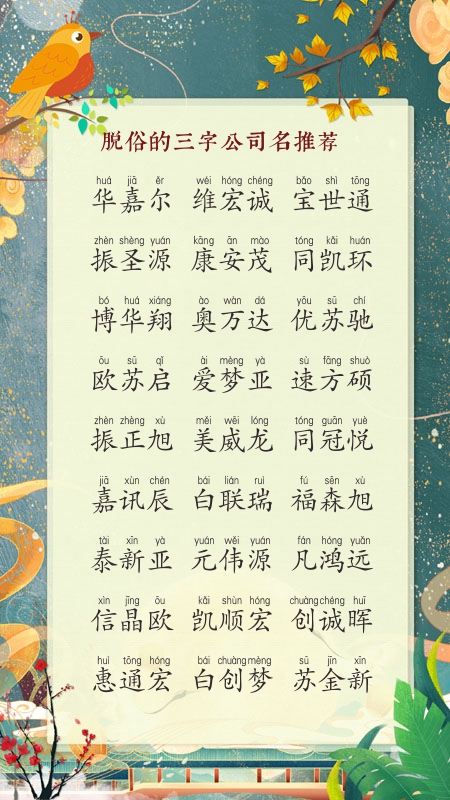 脱俗的三字公司名推荐
huá jiā ěr wéi hóng chéng bǎo shì tōng
华嘉尔 维宏诚 宝世通
zhèn shèng yuán kāng ān mào tóng kǎi huán
振圣源 康安茂 同凯环
bó huá xiáng ào wàn dá yōu sū chí
博华翔 奥万达 优苏驰
ōu sū qǐ ài mèng yà sù fāng shuò
欧苏启 爱梦亚 速方硕
zhèn zhèng xù měi wēi lóng tóng guān yuè
振正旭 美威龙 同冠悦
jiā xùn chén bái lián ruì fú sēn xù
嘉讯辰 白联瑞 福森旭
tài xīn yà yuán wěi yuán fán hóng yuǎn
泰新亚 元伟源 凡鸿远
xìn jīng ōu kǎi shùn hóng chuàng chéng huī
信晶欧 凯顺宏 创诚晖
huì tōng hóng bái chuàng mèng sū jīn xīn
惠通宏 白创梦 苏金新